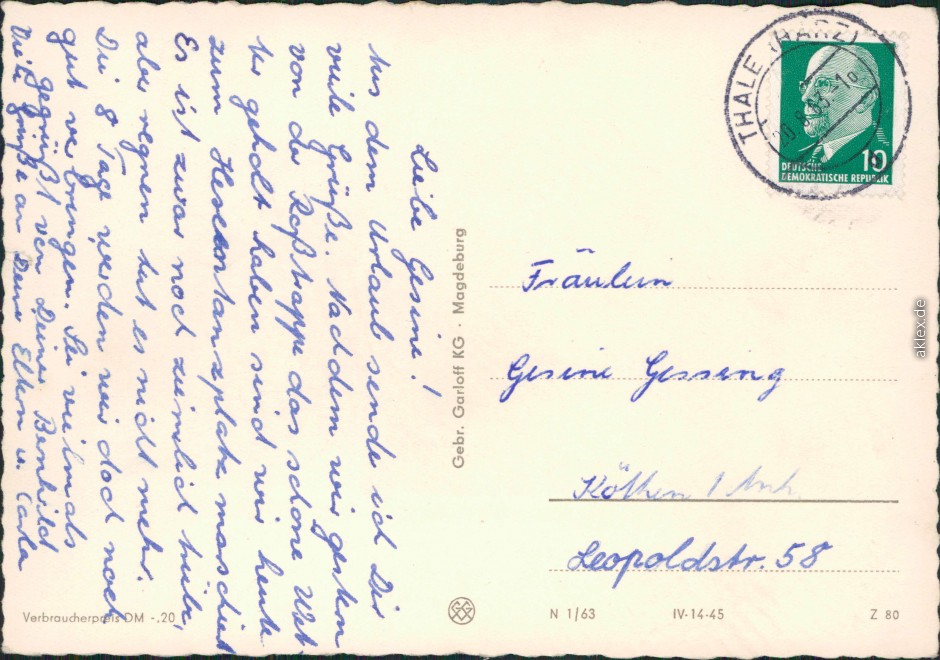 Liebe Gesine!
Aus dem Urlaub sende ich Dir
viele Grüße. Nachdem wir gestern
von der Roßtrappe das schöne Wet-
ter geholt haben sind wir heute
zum Hexentanzplatz marschiert
Es ist zwar noch ziemlich trübe,
aber regnen tut es nicht mehr.
Die 8 Tage werden wir doch noch
gut verbringen. Sei vielmals
gegrüßt von Deiner Bernhild
Viele Grüße an Deine Eltern u. Carla
Gebr. Garloff KG · Magdeburg
THALE (HARZ)
20.8.63-10
10
DEUTSCHE
DEMOKRATISCHE REPUBLIK
Fräulein
Gesine Gessing
Köthen / Anh.
Leopoldstr. 58
Verbraucherpreis DM -.20
N 1/63 IV-14-45 Z 80
aklex.de